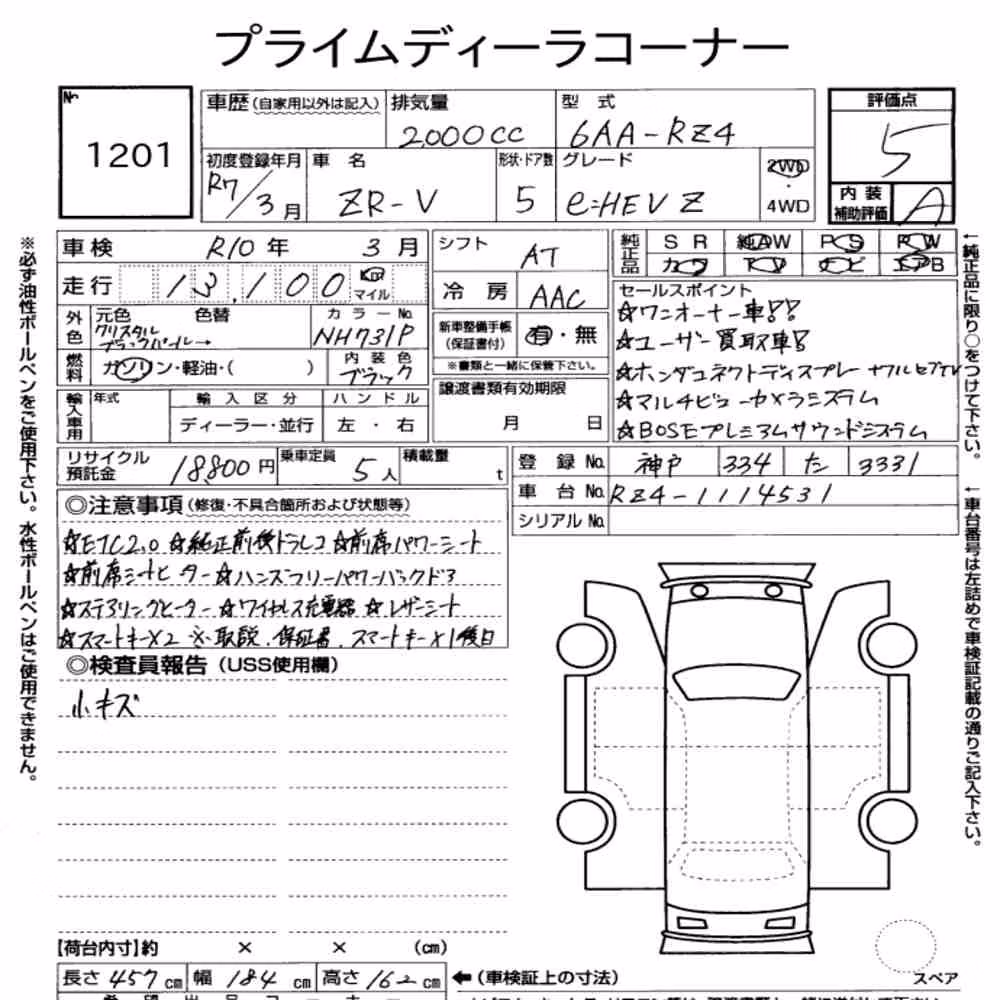 プライムディーラコーナー
№ 1201
車歴(自家用以外は記入)
排気量 2,000cc
型式 6AA-RZ4
評価点 5
初度登録年月 R7/3月
車名 ZR-V
形状・ドア数 5
グレード e:HEV Z
2WD・4WD
内装補助評価 A
車検 R10年 3月
シフト AT
純正品 SR 純AW PS PW
カワ TV ナビ エアB
走行 13,100 km マイル
冷房 AAC
セールスポイント
☆ワンオーナー車!!
☆ユーザー買取車!!
☆ホンダコネクトディスプレー+フルセグTV
☆マルチビューカメラシステム
☆BOSEプレミアムサウンドシステム
外色 元色 色替 カラーNo.
クリスタルブラックパール→ NH731P
新車整備手帳(保証書付) 有・無
※書類と一緒に保管下さい。
燃料 ガソリン・軽油・( )
内装色 ブラック
譲渡書類有効期限
月 日
輸入車用 年式 輸入区分 ハンドル
ディーラー・並行 左・右
リサイクル預託金 18,800円
乗車定員 5人
積載量 t
登録No. 神戸 334 た 3331
車台No. RZ4-1114531
シリアルNo.
◎注意事項(修復・不具合箇所および状態等)
☆ETC2.0 ☆純正前後ドラレコ ☆前席パワーシート
☆前席シートヒーター ☆ハンズフリーパワーバックドア
☆ステアリングヒーター ☆ワイヤレス充電器 ☆レザーシート
☆スマートキー×2 ※取説、保証書、スマートキー×1後日
◎検査員報告(USS使用欄)
小キズ
【荷台内寸】約 × × (cm)
長さ 457cm 幅 184cm 高さ 162cm
←(車検証上の寸法)
スペア
※必ず油性ボールペンをご使用下さい。水性ボールペンはご使用できません。
←純正品に限り○をつけて下さい。
←車台番号は左詰めで車検証記載の通りご記入下さい。